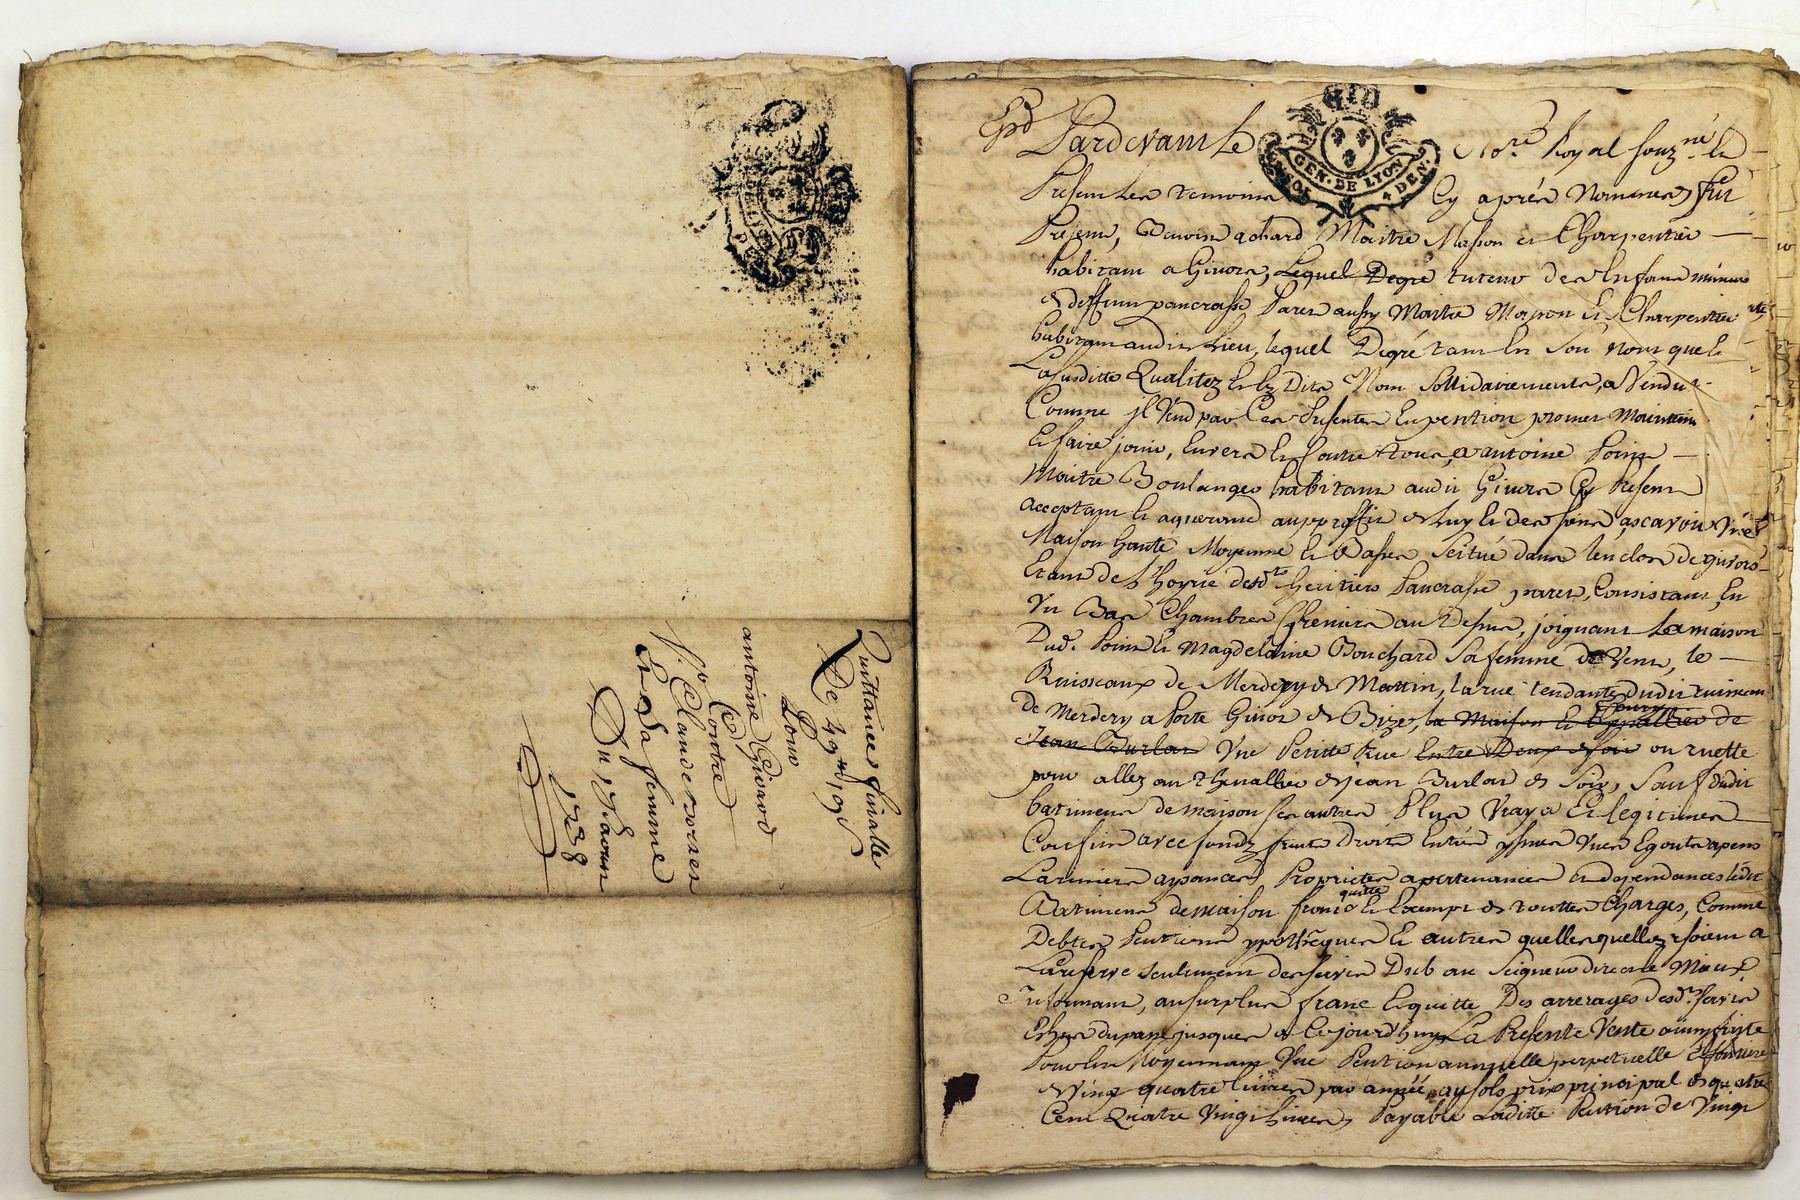 Quittance finalle
De 49ᴸᵗ 10ˢ
Pour
antoine Guirard
Contre
Sʳ Claude
Et Sa femme
Du
1738
Pardevant Le Noʳᵉ Royal souzⁿᵉ Et
Presentes temoins Cy aprés Nommés fut
Present, achard Maitre Masson et Charpentier
habitant a Givors, Lequel Degré tuteur des Enfans mineurs
de deffunt pancrasse Paret aussy Maitre Masson Et Charpentier
habitant audit Lieu, lequel Degré tant En Son Nom que
La susditte Qualitez Et Dits Nom Sollidairement, a Vendu
Comme jl Vend par Ces Presentes En pention promet Maintenir
Et faire jouir, Envers Et Contre tous, a antoine Point
Maitre Boulanger habitant audit Givors Cy Present
acceptant Et aquerant au proffit de Luy Et des siens, ascavoir Une
Maison haute Moyenne Et Basse Scitué dans lenclos de givors
Etant de L'hoyrie desdᵗˢ heritiers Pancrasse paret, Consistant En
Un Bas Chambres Greniers au Dessus, joignant La maison
Dud. Point Et Magdelaine Bouchard Sa femme de Vent, le
Ruisseaux de Merdery de Matin, la rue tendante dudit ruisseau
de Merdery a Porte Givors de Bize, la Maison Et de
Jean Burlat Une Petitte Rue Entre Deux de soir ou ruette
pour allez au Chenallier de jean Burlat de Soir, Sauf dudit
batiment de maison Ses autres Plus Vrays Et legitimes
Confins avec fondz fruits Droits Entrées yssues Vues Egouts apens
Larmiers aysances Proprietes apertenances Et dependances ledit
Batiment de maison franc quitte Et Exempt de touttes Charges, Comme
Debtes Pentions ypottheques Et autres quelles quelles soient a
La reserve seulement des servis Dub au Seigneur direct Mieux
Informant, au surplus franc Et quitte Des arrerages desdᵗˢ servis
Echus du passé jusques a Cejourd'huy La Presente Vente ainsy faitte
Pour Et Moyennant Une Pention annuelle perpetuelle Et fonciere
de Vingt quatre livres par année, au sols prix principal de quatre
Cent Quatre Vingt Livres, Payable Laditte Pention de Vingt
GEN. DE LYON
4 DEN.